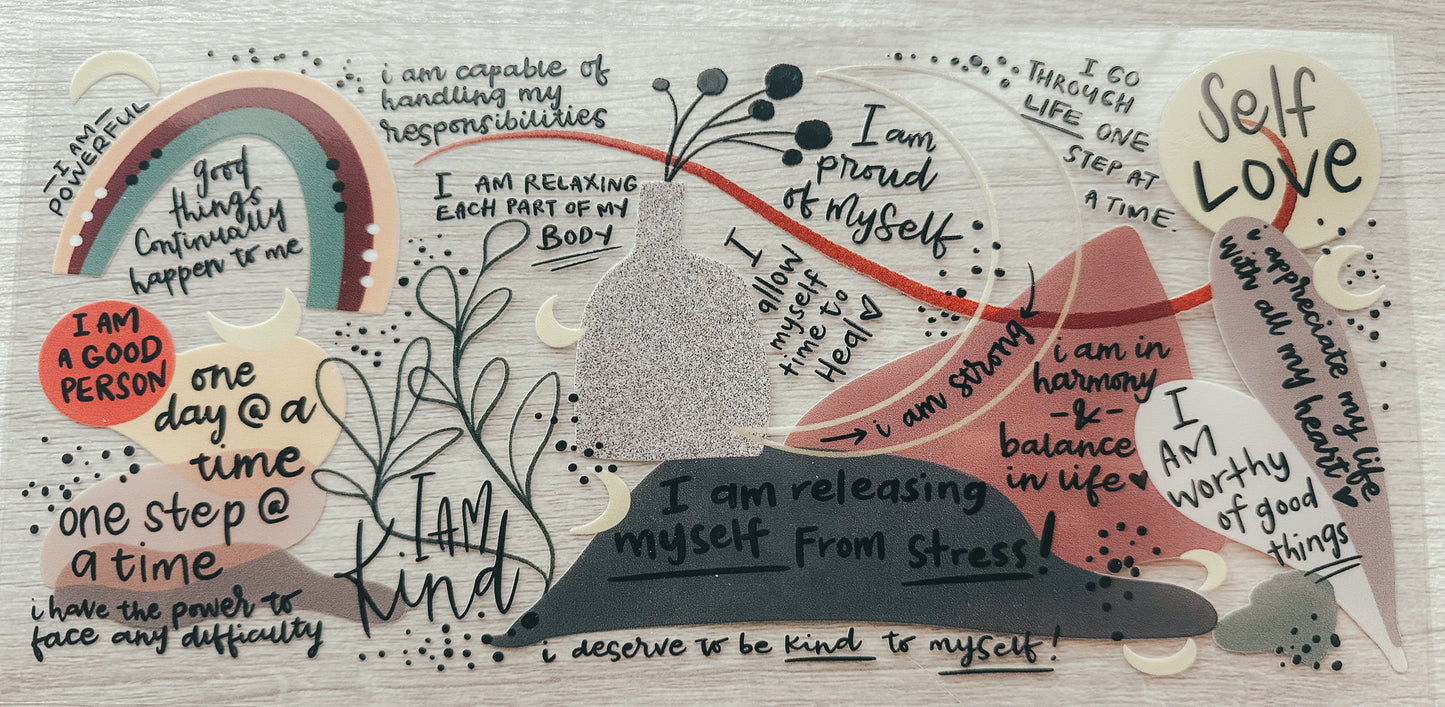 -I AM-
POWERFUL
good
things
Continually
happen to me
i am capable of
handling my
responsibilities
I AM RELAXING
EACH PART OF MY
BODY
I am
proud
of myself
I
allow
myself
time to
Heal
I GO
THROUGH
LIFE ONE
STEP AT
A TIME.
Self
Love
i appreciate my life
with all my heart
I AM
A GOOD
PERSON
one
day @ a
time
one step @
a time
i have the power to
face any difficulty
I AM
Kind
i am strong
i am in
harmony
-&-
balance
in life
I
AM
worthy
of good
things
I am releasing
myself From Stress!
i deserve to be kind to myself!